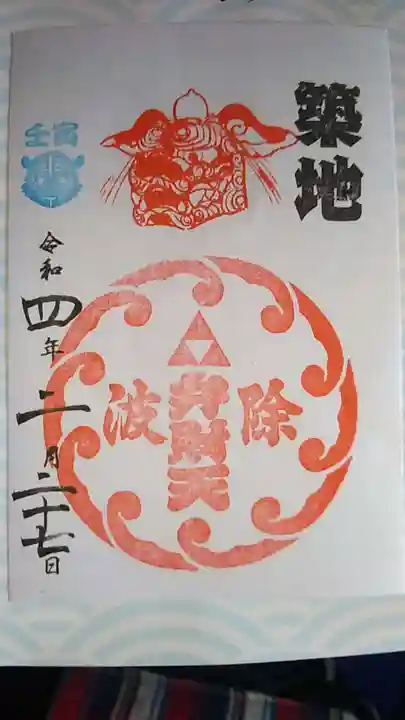 築地
除波
弁財天
壬寅
令和四年二月二十七日